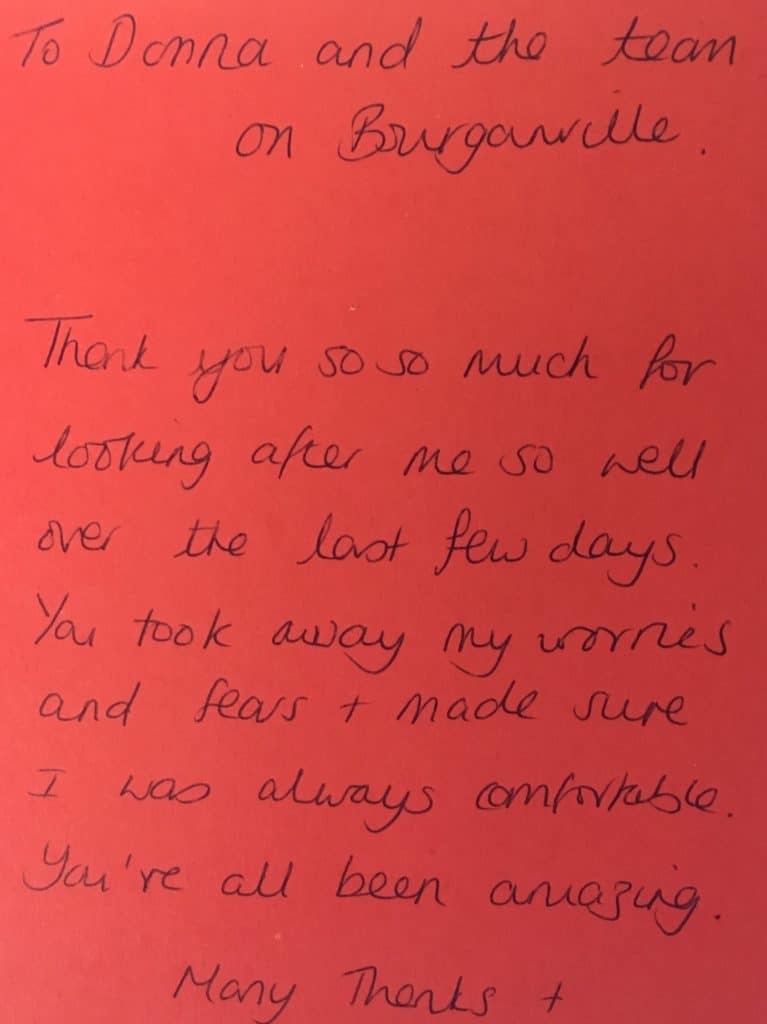 To Donna and the team
on Bourgainville.
Thank you so so much for
looking after me so well
over the last few days.
You took away my worries
and fears + made sure
I was always comfortable.
You're all been amazing.
Many Thanks +